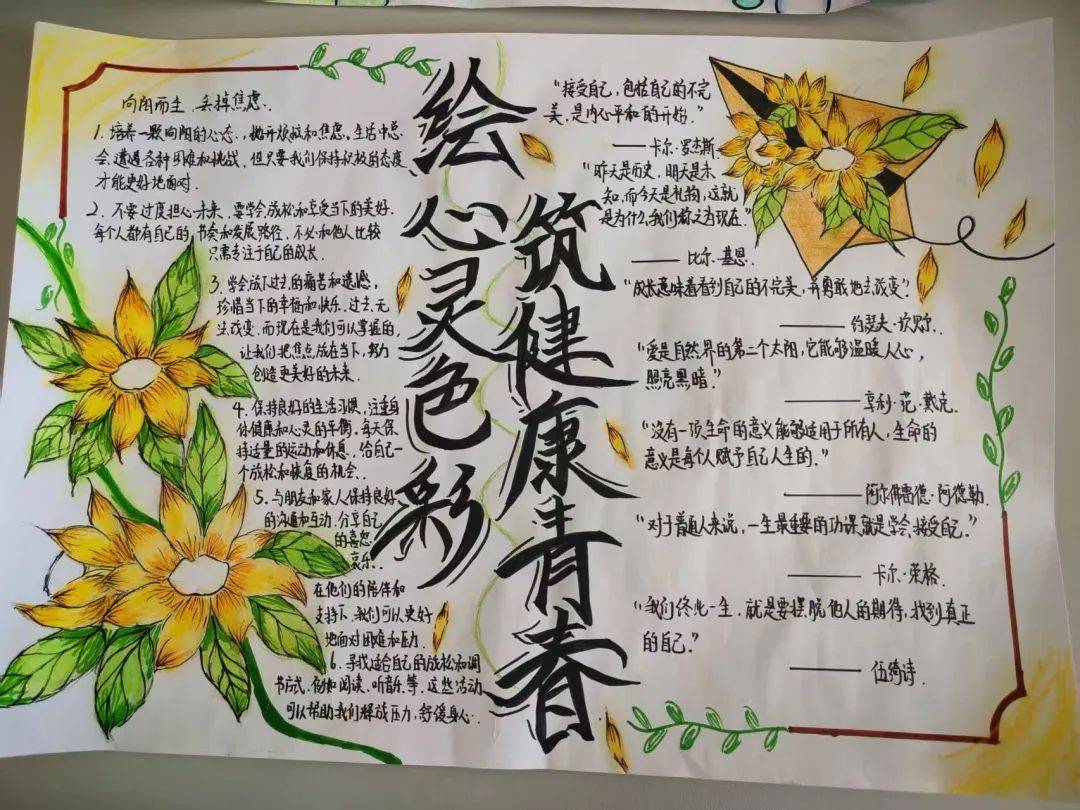 绘心灵色彩
筑健康青春
向阳而生、丢掉焦虑.
1. 培养一颗向阳的心态，抛开烦恼和焦虑。生活中总
会遭遇各种困难和挑战，但只要我们保持积极的态度
才能更好地面对.
2、不要过度担心未来、要学会放松和享受当下的美好.
每个人都有自己的节奏和发展路径，不必和他人比较
只需专注于自己的成长.
3. 学会放下过去的痛苦和遗憾，
珍惜当下的幸福和快乐。过去无
法改变，而现在是我们可以掌握的，
让我们把焦点放在当下，努力
创造更美好的未来.
4. 保持良好的生活习惯，注重身
体健康和心灵的平衡，每天保
持适量的运动和休息，给自己一
个放松和恢复的机会.
5、与朋友和家人保持良好
的沟通和互动，分享自己
的喜怒
哀乐.
在他们的陪伴和
支持下，我们可以更好
地面对困难和压力.
6、寻找适合自己的放松和调
节方式，例如阅读、听音乐等，这些活动
可以帮助我们释放压力，舒缓身心.
“接受自己，包括自己的不完
美，是内心平和的开始.”
——卡尔·罗杰斯.
“昨天是历史，明天是未
知，而今天是礼物，这就
是为什么我们称之为现在.”
—— 比尔·基恩.
“成长意味着看到自己的不完美，并勇敢地去改变”.
—— 约瑟夫·坎贝尔.
“爱是自然界的第二个太阳，它能够温暖人心，
照亮黑暗.”
—— 亨利·范·戴克.
“没有一项生命的意义能够适用于所有人，生命的
意义是每个人赋予自己人生的.”
—— 阿尔弗雷德·阿德勒.
“对于普通人来说，一生最重要的功课就是学会接受自己.”
—— 卡尔·荣格.
“我们终此一生，就是要摆脱他人的期待，找到真正
的自己.”
—— 伍绮诗.